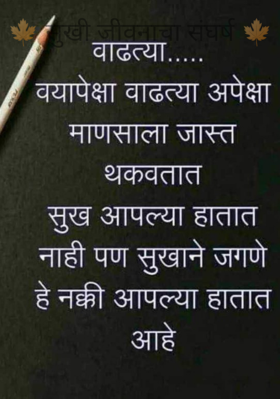 🍁 सुखी जीवनाचा संघर्ष 🍁
वाढत्या.....
वयापेक्षा वाढत्या अपेक्षा
माणसाला जास्त
थकवतात
सुख आपल्या हातात
नाही पण सुखाने जगणे
हे नक्की आपल्या हातात
आहे